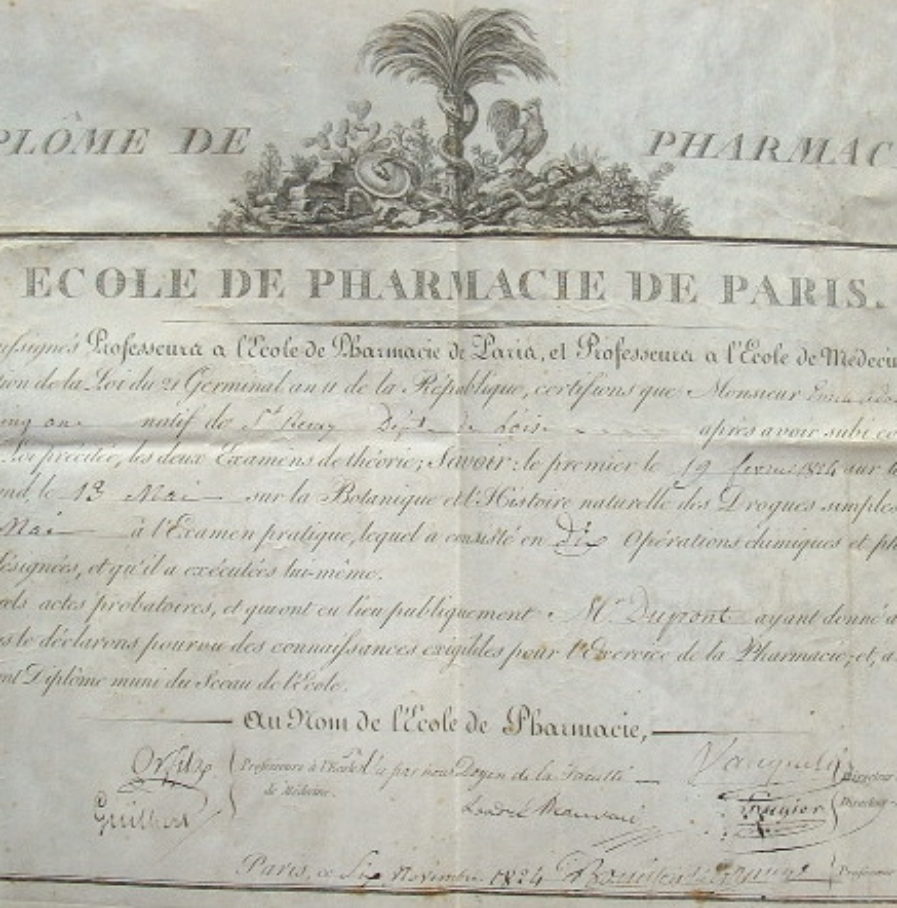 PLÔME DE PHARMAC
ECOLE DE PHARMACIE DE PARIS.
ussignés Professeurs a l'Ecole de Pharmacie de Paris, et Professeurs a l'École de Médecin
tion de la Loi du 21 Germinal an 11 de la République, certifions que Monsieur
natif de St Dépt de après avoir subi co
Loi précitée, les deux Examens de théorie; Savoir: le premier le 19 1824 sur
ond, le 13 Mai sur la Botanique et l'Histoire naturelle des Drogues simples
Mai à l'Examen pratique, lequel a consisté en Dix Opérations chimiques et ph
désignées, et qu'il a exécutées lui-même.
els actes probatoires, et qui ont eu lieu publiquement. Mr Dupont ayant donné
s le déclarons pourvu des connaissances exigibles pour l'Exercice de la Pharmacie; et, a
ent Diplôme muni du Sceau de l'École.
Au Nom de l'École de Pharmacie,
Orfila Professeurs à l'École de Médecine. Vu par nous Doyen de la Faculté Vauquelin Directeur
Guilbert Landré Beauvais Directeur
Paris, ce Six Novembre 1824 Bouillon Professeur